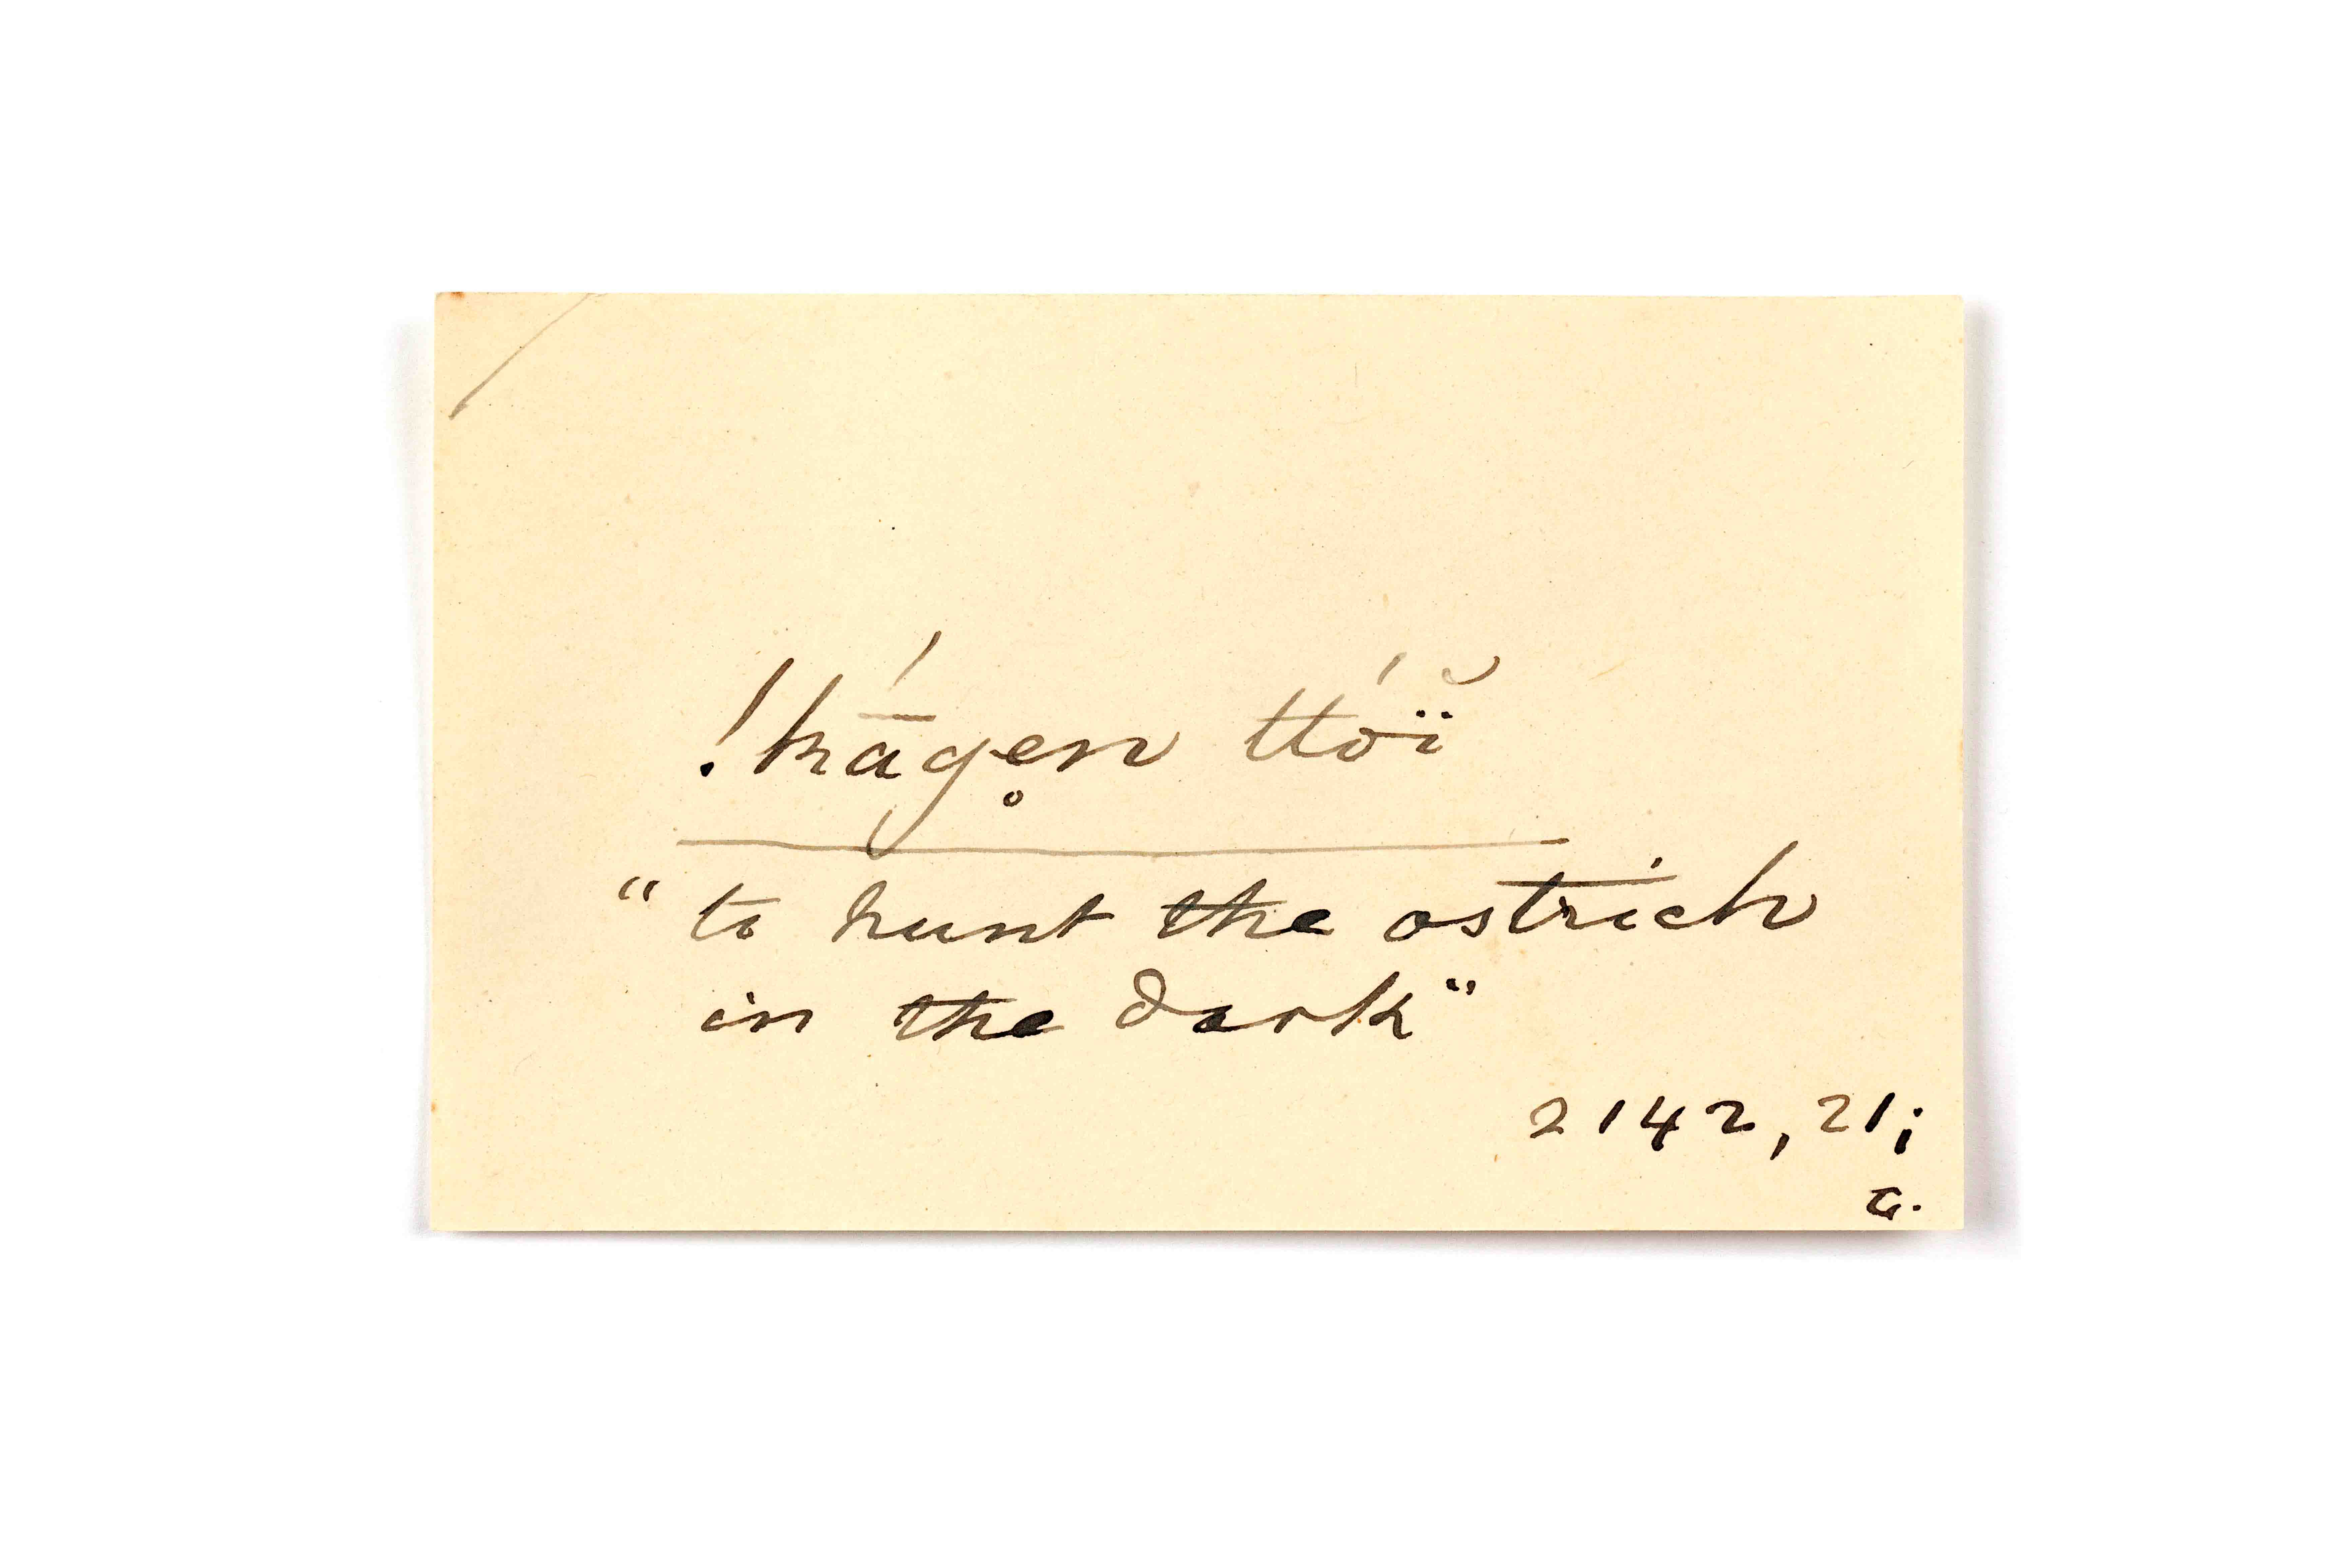 !kā́gen̥ ttó̆ï
“ to hunt the ostrich
in the dark”
2142, 21;
G.